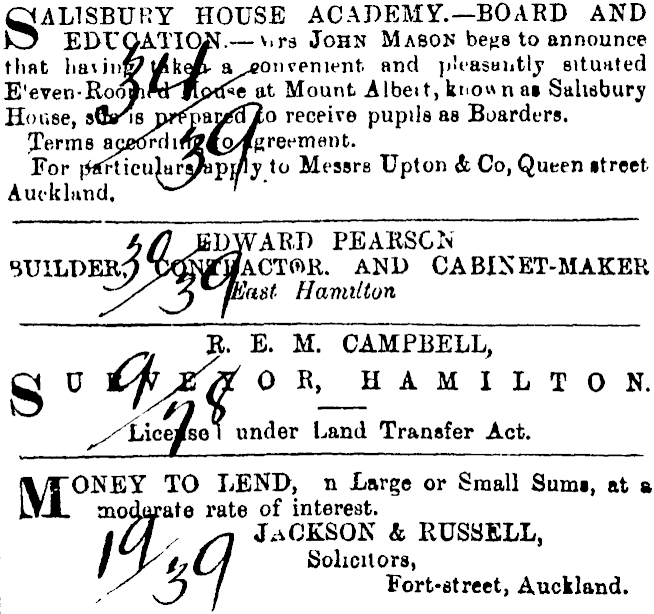 SALISBURY HOUSE ACADEMY.—BOARD AND
EDUCATION.—Mrs JOHN MASON begs to announce
that having taken a convenient and pleasantly situated
E'even-Roomed House at Mount Albert, known as Salisbury
House, she is prepared to receive pupils as Boarders.
Terms according to Agreement.
For particulars apply to Messrs Upton & Co, Queen street
Auckland.
34/39
EDWARD PEARSON
BUILDER, CONTRACTOR. AND CABINET-MAKER
East Hamilton
30/39
R. E. M. CAMPBELL,
SURVEYOR, HAMILTON.
License under Land Transfer Act.
9/78
MONEY TO LEND, n Large or Small Sums, at a
moderate rate of interest.
JACKSON & RUSSELL,
Solicitors,
Fort-street, Auckland.
19/39